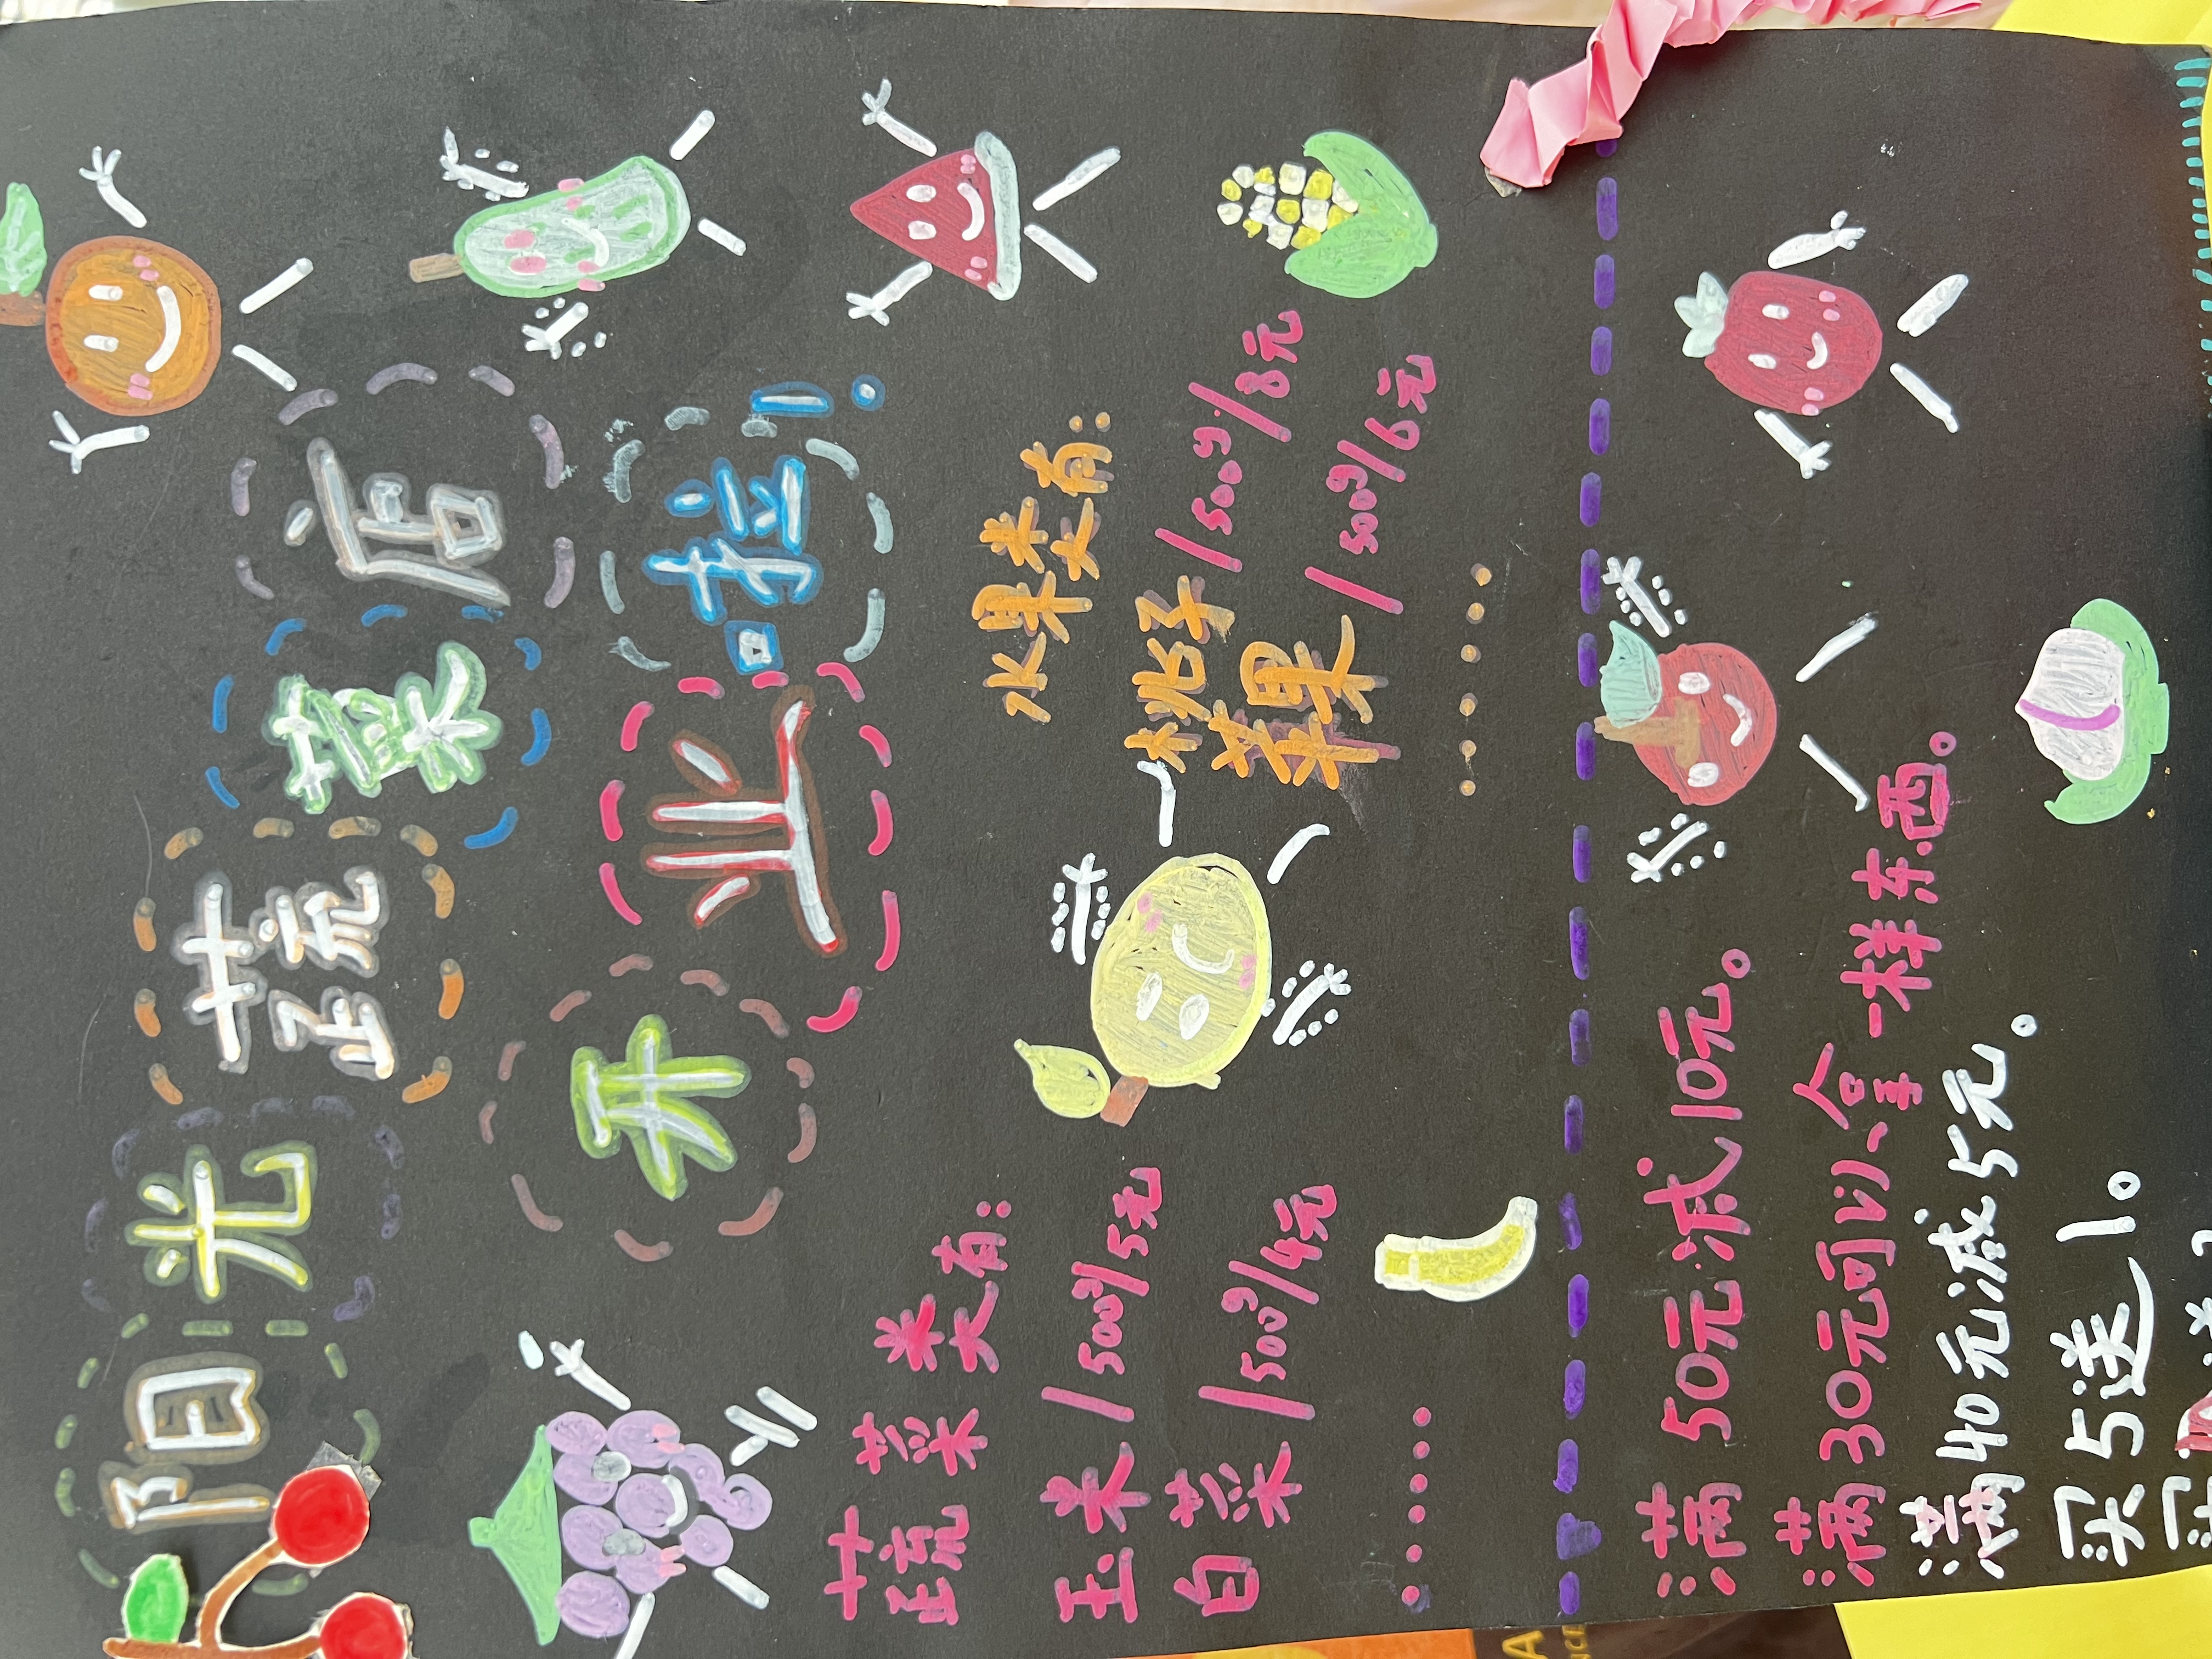 阳光蔬菜店
开业啦!
蔬菜类有:
玉米/500g/5元
白菜/500g/4元
......
水果类有:
桃子/500g/8元
苹果/500g/6元
......
满50元减10元。
满30元可以拿一样东西。
满40元减5元。
买5送1。